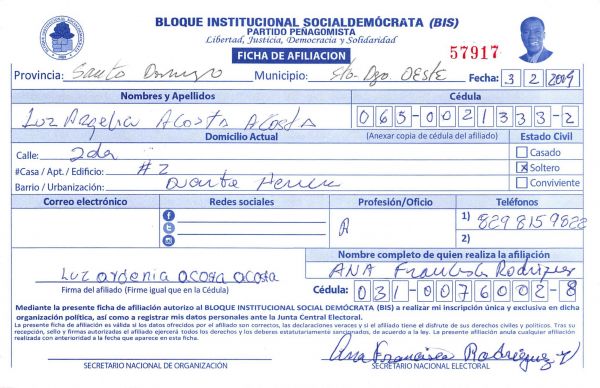 BLOQUE INSTITUCIONAL SOCIALDEMÓCRATA (BIS)
PARTIDO PEÑAGOMISTA
Libertad, Justicia, Democracia y Solidaridad
FICHA DE AFILIACION
57917
Provincia: Santo Domingo Municipio: Sto. Dgo OESTE Fecha: 3 2 2019
Nombres y Apellidos Cédula
Luz Argelia Acosta Acosta 065-0021333-2
Domicilio Actual (Anexar copia de cédula del afiliado) Estado Civil
Calle: 2da Casado
#Casa / Apt. / Edificio: #2 Soltero
Barrio / Urbanización: Duarte Conviviente
Correo electrónico Redes sociales Profesión/Oficio Teléfonos
1) 829 815 9822
2)
Nombre completo de quien realiza la afiliación
ANA Francisca Rodriguez
Luz ardenia acosa acosta
Firma del afiliado (Firme igual que en la Cédula) Cédula: 031-0076002-8
Mediante la presente ficha de afiliación autorizo al BLOQUE INSTITUCIONAL SOCIAL DEMÓCRATA (BIS) a realizar mi inscripción única y exclusiva en dicha
organización política, así como a registrar mis datos personales ante la Junta Central Electoral.
La presente ficha de afiliación es válida si los datos ofrecidos por el afiliado son correctos, las declaraciones veraces y si el afiliado tiene el disfrute de sus derechos civiles y políticos. Tras su
recepción, sello y firmas autorizadas el afiliado ejercerá todos los derechos y los deberes estatutariamente sancionados, de acuerdo a la ley. La presente afiliación anula cualquier afiliación
realizada con anterioridad a la fecha que aparece en esta ficha.
Ana Francisca Rodríguez
SECRETARIO NACIONAL DE ORGANIZACIÓN SECRETARIO NACIONAL ELECTORAL